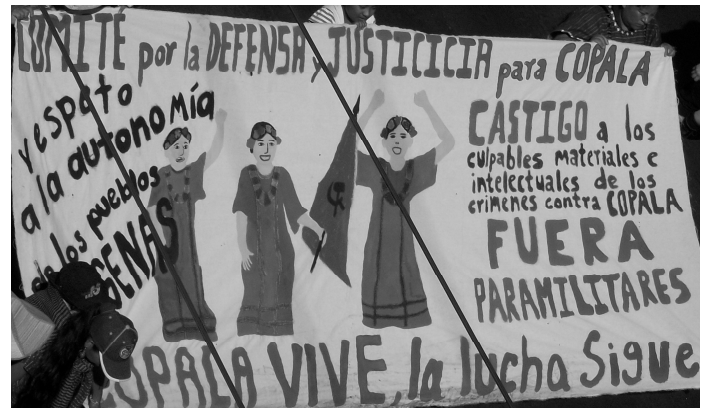 COMITÉ por la DEFENSA y JUSTICICIA para COPALA
respeto
a la autonomía
de los pueblos
GENAS
CASTIGO a los
culpables materiales e
intelectuales de los
crimenes contra COPALA
FUERA
PARAMILITARES
COPALA VIVE, la lucha Sigue